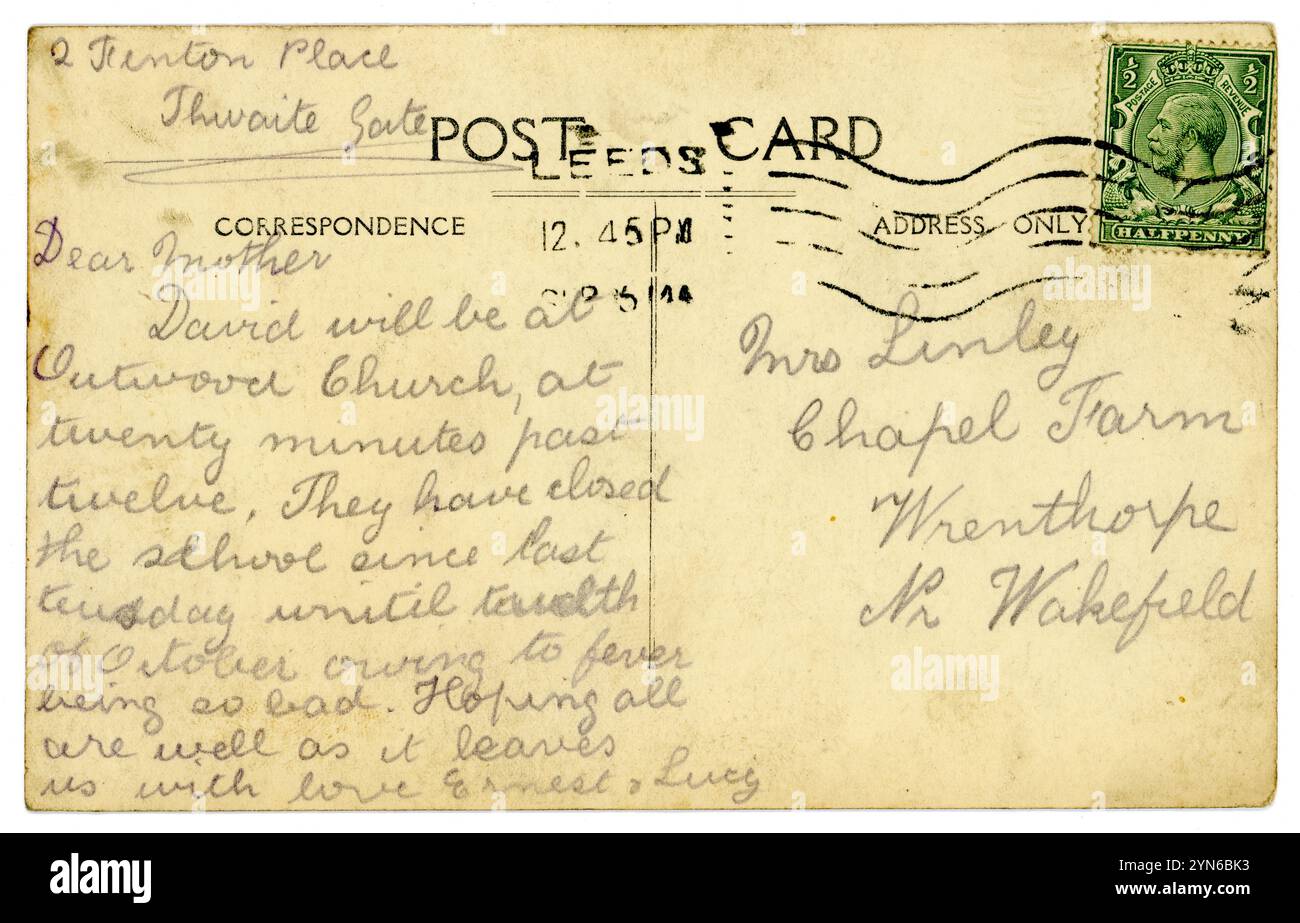 2 Fenton Place
Thwaite Gate
POST CARD
LEEDS
12. 45 PM
5 14
CORRESPONDENCE
ADDRESS ONLY
1/2 1/2
POSTAGE REVENUE
HALFPENNY
Dear Mother
David will be at
Outwood Church, at
twenty minutes past
twelve. They have closed
the school since last
tusday unitil
of October owing to fever
being so bad. Hoping all
are well as it leaves
us with love Ernest & Lucy
Mrs Linley
Chapel Farm
Wrenthorpe
Nr Wakefield
alamy
Image ID: 2YN6BK3
www.alamy.com